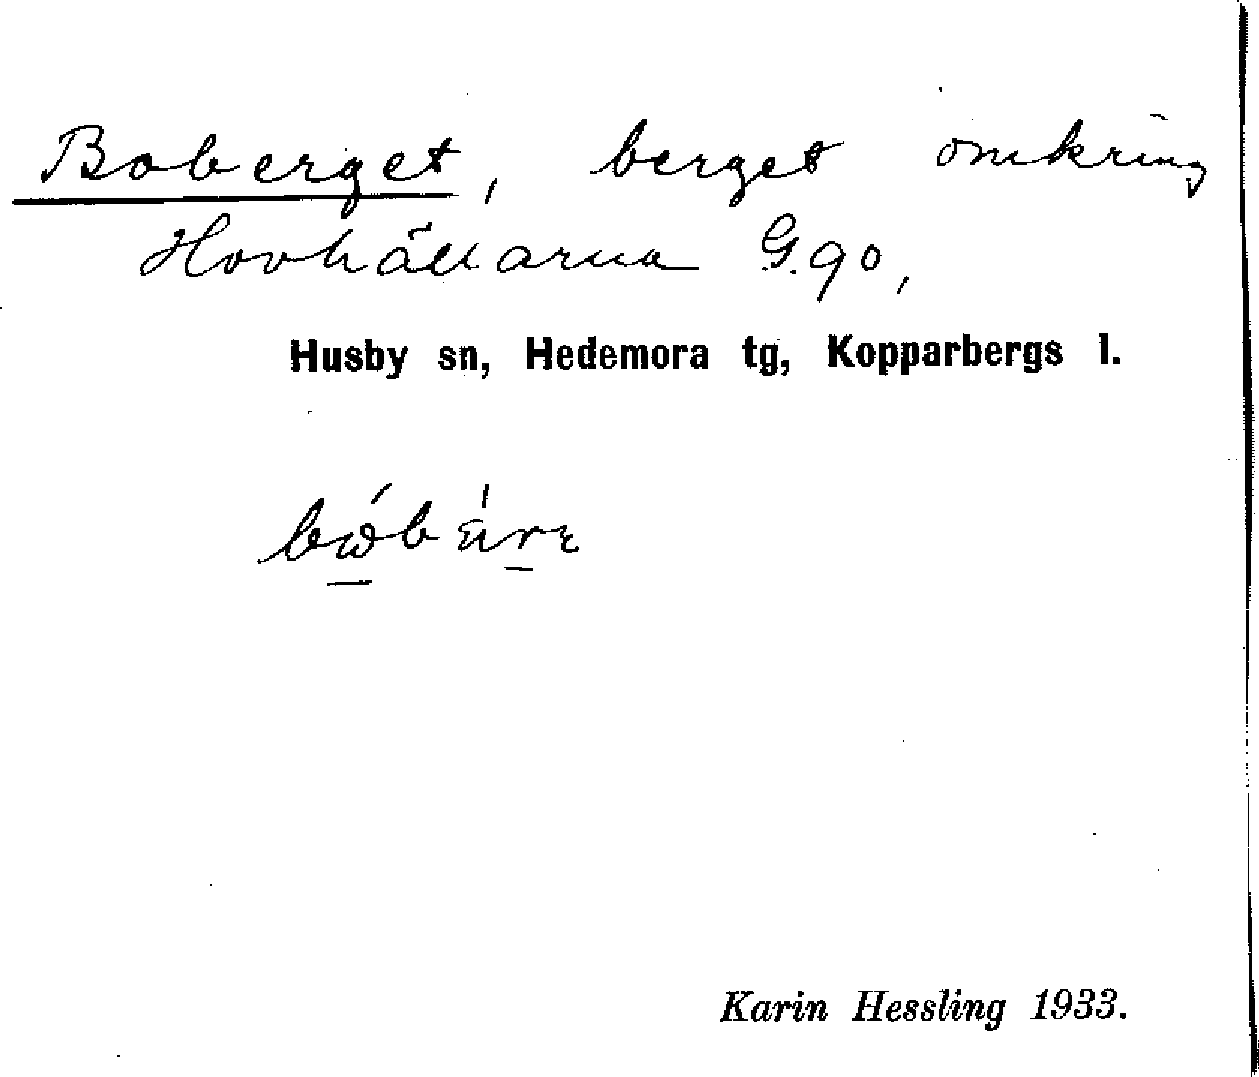 Boberget, berget omkring
Hovhällarna G.90,
Husby sn, Hedemora tg, Kopparbergs l.
Karin Hessling 1933.